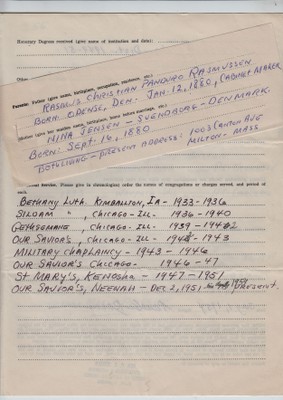 Honorary Degrees received (give name of institution and date):
Parents: Father (give name, birthplace, occupation, residence, etc.)
RASMUS CHRISTIAN PANDURO RASMUSSEN
BORN: ODENSE, DEN. JAN. 12, 1880, CABINET MAKER
Mother (give her maiden name, birthplace, home before marriage, etc.)
NINA JENSEN - SVENDBORG - DENMARK.
BORN: SEPT. 16, 1880
BOTH LIVING - PRESENT ADDRESS: 1003 CANTON AVE
MILTON - MASS
Service. Please give in chronological order the names of congregations or charges served, and period of each.
BETHANY LUTH. KIMBALLTON, IA - 1933-1936
SILOAM " , CHICAGO - ILL - 1936-1940
GETHSEMANE , CHICAGO - ILL - 1939 - 1942
OUR SAVIOR'S , CHICAGO - ILL - 1942 - 1943
MILITARY CHAPLAINCY - 1943 - 1946
OUR SAVIOR'S CHICAGO - 1946 - 47
ST MARY'S, KENOSHA - 1947 - 1951
OUR SAVIOR'S, NEENAH - DEC 2, 1951 present.